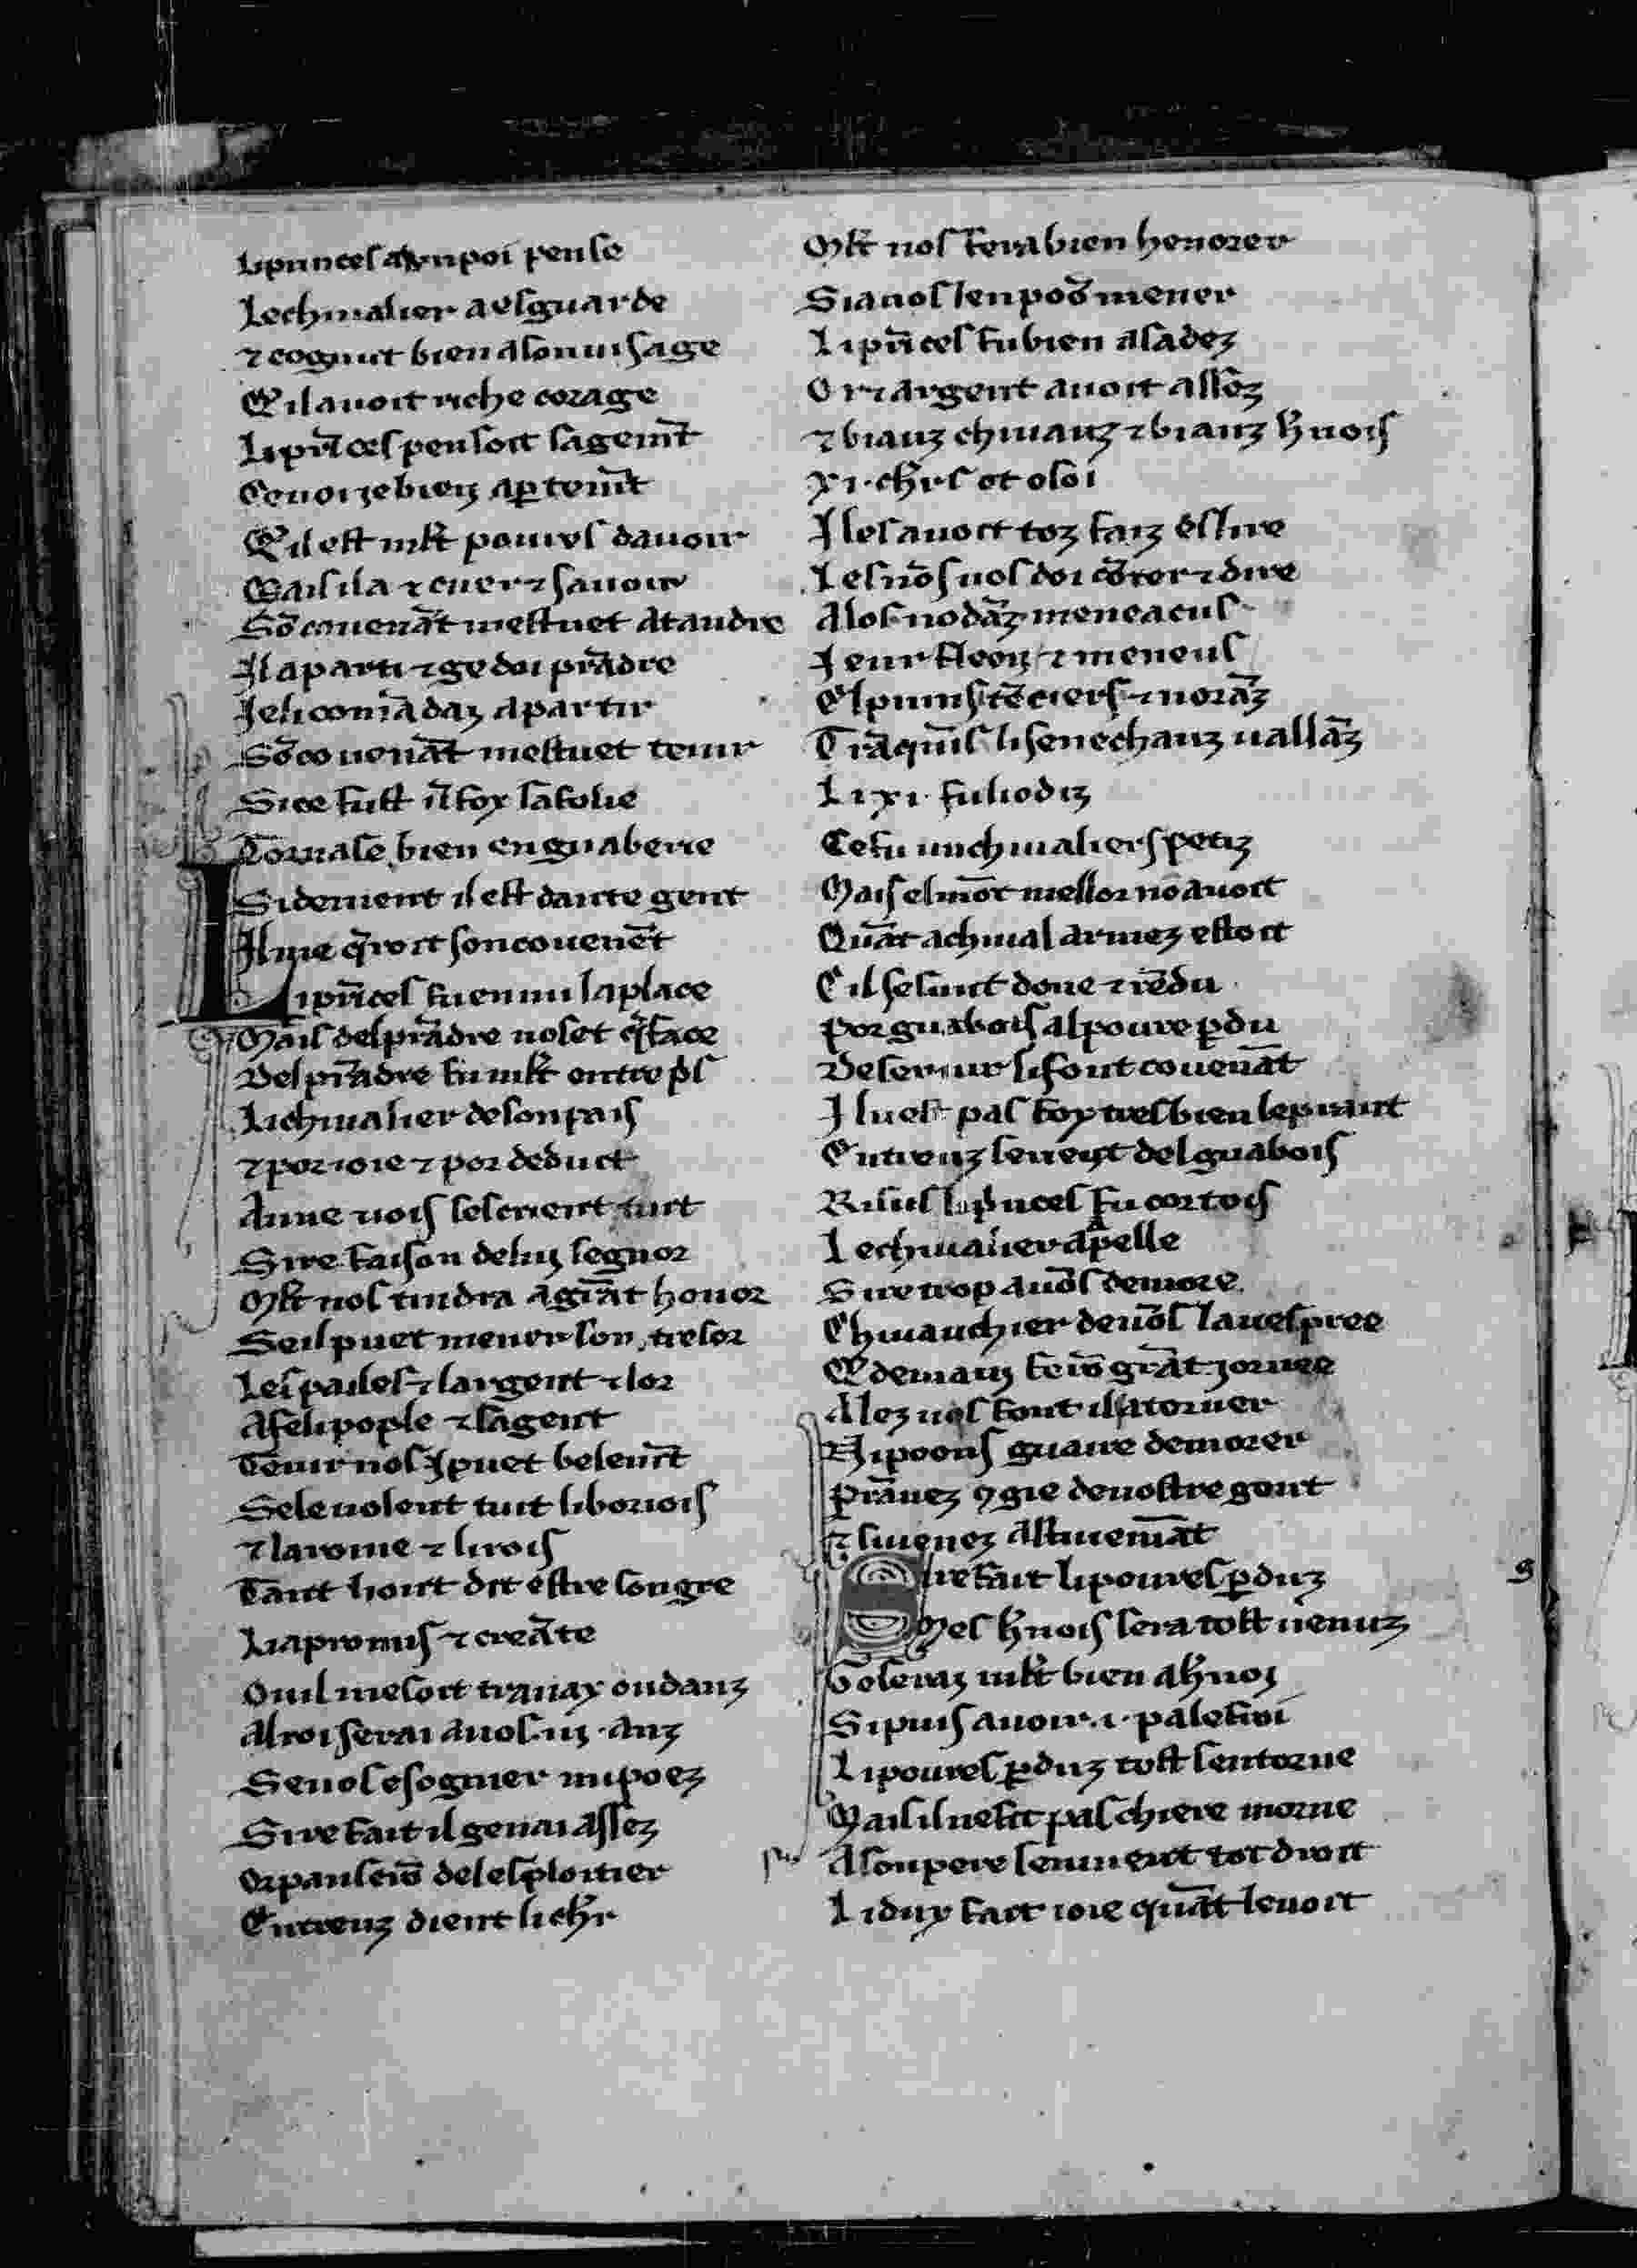 Li princes a un poi pense
Le chīualier a esguarde
⁊ cognut bien a son uisage
Qil auoit riche corage
Li pīces pensoit sagemt̄
Ce uoi ie bien apꝑtemt̄
Qil est mlt̄ poures dauoir
Mais il a ⁊ cuer ⁊ sauoir
Sō couenāt mestuet atandre
Il a parti ⁊ ge doi prādre
Je li comāda apartir
Sō couenāt mestuet tenir
Si ce fust
Tornase bien en guaberie
Si dement il est daute gent
Il me q̄roit son couenēt
Li pīces fu en mi la place
Mais del prādre no set q̄ face
Del prādre fu mlt̄ entrepˢ
Li chīualier de son pais
⁊ por ioie ⁊ por deduit
A une uois sescrient tuit
Sire faison de lui segnor
Mlt̄ nos tindra a grāt honor
Seil puet mener son tresor
Les pailes ⁊ largent ⁊ lor
Asseli pople ⁊ sa gent
Tenir nos ī puet belemt̄
Se le uolent tuit li boriois
⁊ la rome ⁊ li rois
Tant hont dit estre son gre
Lia promis ⁊ creāte
Ou il me soit trauax ou danz
Al roi serai a uos .iii. anz
Se uos esognier mi poez
Sire fait il ge nai assez
Or panserōs del esploitier
Entreuz dient li chr̄
Mlt̄ nos fera bien henorer
Si a uos len poōs mener
Li pīces fu bien asadez
Or ⁊ argent auoit assez
⁊ biauz chīuauz ⁊ biauz h̄nois
XI. chr̄s ot o soi
Il les auoit toz faiz eslire
Les nōs uos doi cōter ⁊ dire
Alos no dāz meneacus
Jeur fleon ⁊ meneus
El pīnis tēciers ⁊ norāz
Trāquīs li senechauz uallāz
Li XI. fu liodiz
Ce fu un chīualiers petiz
Mais el mōt mellor no auoit
Quāt a chīual armez estoit
Cil se sunt done ⁊ rēdu
Por guabois al poure ꝑdu
De seruir li font couenāt
Il nest pas fox tresbien le prant
Entreuz se rient del guabois
Rius li princes fu cortois
Le chīualier apelle
Sire trop auōs demore
Chīuauchier deuōs la uespree
Q demain ferōs grāt iornee
Alez uos font il atorner
Ni poons guaire demorer
Prāuez ꝯgie de uostre gent
⁊ si uenez astiuemāt
Sire fait li poures ꝑduz
Mes h̄nois sera tost uenuz
Toserai mlt̄ bien a h̄noi
Si puis auoir .i. palefroi
Li poures ꝑduz tost sen torne
Mais il ne fait pas chiere morne
A son pere sen uient tot droit
Li dux fait ioie quāt le uoit